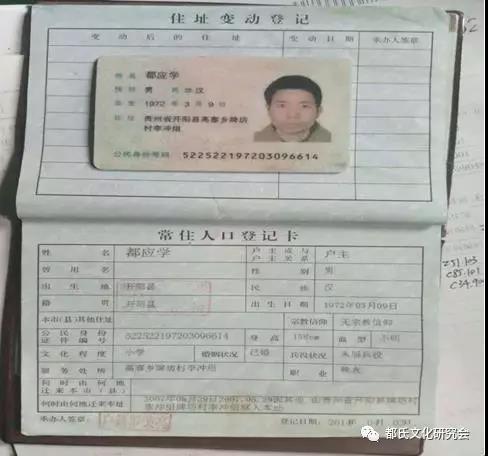 住址变动登记
变动后的住址 变动日期 承办人签章
姓名 都应学
性别 男 民族 汉
出生 1972 年 3 月 9 日
住址 贵州省开阳县高寨乡牌坊
村李冲组
公民身份号码 522522197203096614
常住人口登记卡
姓名 都应学 户主或与户主关系 户主
曾用名 性别 男
出生地 开阳县 民族 汉
籍贯 开阳县 出生日期 1972年03月09日
本市(县)其他住址 宗教信仰 无宗教信仰
公民身份证件编号 522522197203096614 身高 血型 不明
文化程度 小学 婚姻状况 已婚 兵役状况 未服兵役
服务处所 高寨乡牌坊村李冲组 职业
何时由何地迁来本市(县)
何时由何地迁来本址
承办人签章: 登记日期:
都氏文化研究会